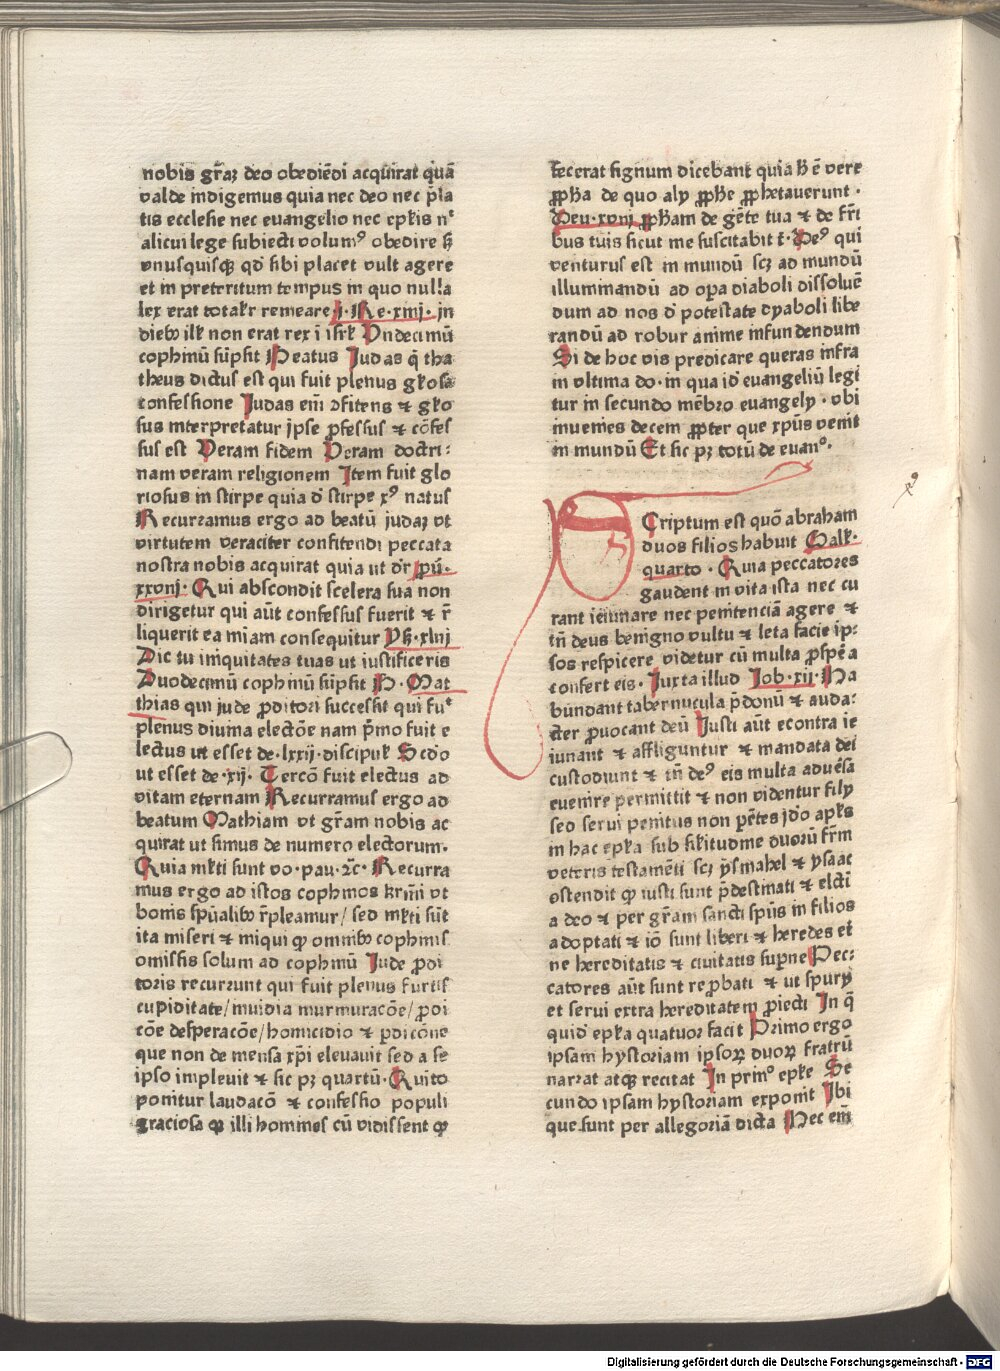 nobis gr̄aꝫ deo obediēdi acquirat quā
valde indigemus quia nec deo nec p̄la
tis ecclesie nec euangelio nec epk̄is nͭ
alicui lege subiecti volumꝰ obedire sꝫ
vnusquisqꝫ qd̓ sibi placet vult agere
et in preteritum tempus in quo nulla
lex erat totalr̓ remeare·j·Re·xiiij·jn
diebꝫ ill̓ non erat rex ī isrl̓ Vndecimū
cophinū sūpsit Beatus Judas q̄ tha
theus dictus est qui fuit plenus gl̓osa
confessione Judas em̄ ↄfitens ⁊ glo
sus interpretatur jpse ꝓfessus ⁊ cōfes
sus est Veram fidem Veram doctri:
nam veram religionem Item fuit glo
riosus in stirpe quia d̓ stirpe xꝰ natus
Recurramus ergo ad beatū judaꝫ vt
virtutem veraciter confitendi peccata
nostra nobis acquirat quia ut dr̄ ꝓū·
xxviij· Qui abscondit scelera sua non
dirigetur qui aūt confessus fuerit ⁊ r̄
liquerit ea miam consequitur Ys·xliij
Dic tu iniquitates tuas ut iustificeris
Duodecimū cophinū sūpsit B·Mat
thias qui jude ꝓditori successit qui fuͭ
plenus diuina electōe nam p̄mo fuit e
lectus ut esset de·lxxij·discipul̓ Scdo
ut esset de·xij· Tercō fuit electus ad
vitam eternam Recurramus ergo ad
beatum Mathiam vt gr̄am nobis ac
quirat ut simus de numero electorum·
Quia ml̓ti sunt vo·pau·⁊c· Recurra
mus ergo ad istos cophinos kr̄mi vt
bonis sp̄ualibꝫ r̄pleamur/ sed ml̓ti sūt
ita miseri ⁊ iniqui ꝙ omnibꝫ cophinis
omissis solum ad cophinū Jude ꝓdi
toris recurrunt qui fuit plenus furtis
cupiditate/ inuidia murmuracōe/ ꝓdi
cōe desperacōe/ homicidio ⁊ ꝑdicōne
que non de mensa xp̄i eleuauit sed a se
ipso impleuit ⁊ sic pꝫ quartū· Quito
ponitur laudacō ⁊ confessio populi
graciosa ꝙ illi homines cū vidissent ꝙ
fecerat signum dicebant quia h̓ ē vere
ꝓph̓a de quo alij ꝓph̓e ꝓphetauerunt·
Deu·xviij ꝓph̓am de gēte tua ⁊ de fr̄i
bus tuis sicut me suscitabit t̄· Deꝰ qui
venturus est in mundū scꝫ ad mundū
illuminandū ad oꝑa diaboli dissoluē
dum ad nos d̓ potestate dyaboli libe
randū ad robur anime infundendum
Si de hoc vis predicare queras infra
in vltima do·in qua id̓ euangeliū legi
tur in secundo mēbro euangelij·vbi
inuenies decem ꝓpter que xp̄us venit
in mundū Et sic pꝫ totū de euanᵒ.
Scriptum est quō abraham
duos filios habuit Gal̓·
quarto·Quia peccatores
gaudent in vita ista nec cu
rant ieiunare nec penitenciā agere ⁊
tn̄ deus benigno vultu ⁊ leta facie ip:
sos respicere videtur cū multa ꝓspēa
confert eis·Juxta illud Job·xij·Ha
bundant tabernucula p̄donū ⁊ auda:
cter ꝓuocant deū Justi aūt econtra ie
iunant ⁊ affliguntur ⁊ mandata dei
custodiunt ⁊ tn̄ deꝰ eis multa aduēsa
euenire permittit ⁊ non videntur filij
sed serui penitus non pētes jdo apl̓s
in hac epl̓a sub sil̓itudine duorū fr̄m
veteris testamēti scꝫ ysmahel ⁊ ysaac
ostendit ꝙ iusti sunt p̄destinati ⁊ elcti
a deo ⁊ per gr̄am sancti spūs in filios
adoptati ⁊ iō sunt liberi ⁊ heredes et
ne hereditatis ⁊ ciuitatis suꝑne Pec:
catores aūt sunt reꝓbati ⁊ ut spurij
et serui extra hereditatem ꝓiecti In q̄
quid epl̓a quatuor facit Primo ergo
ipsam hystoriam ipsoꝝ duoꝝ fratrū
narrat atqꝫ recitat In prinᵒ epl̓e Se
cundo ipsam hystoriam exponit Ibi
que sunt per allegoriā dicta Hec em̄
Digitalisierung gefördert durch die Deutsche Forschungsgemeinschaft - DFG